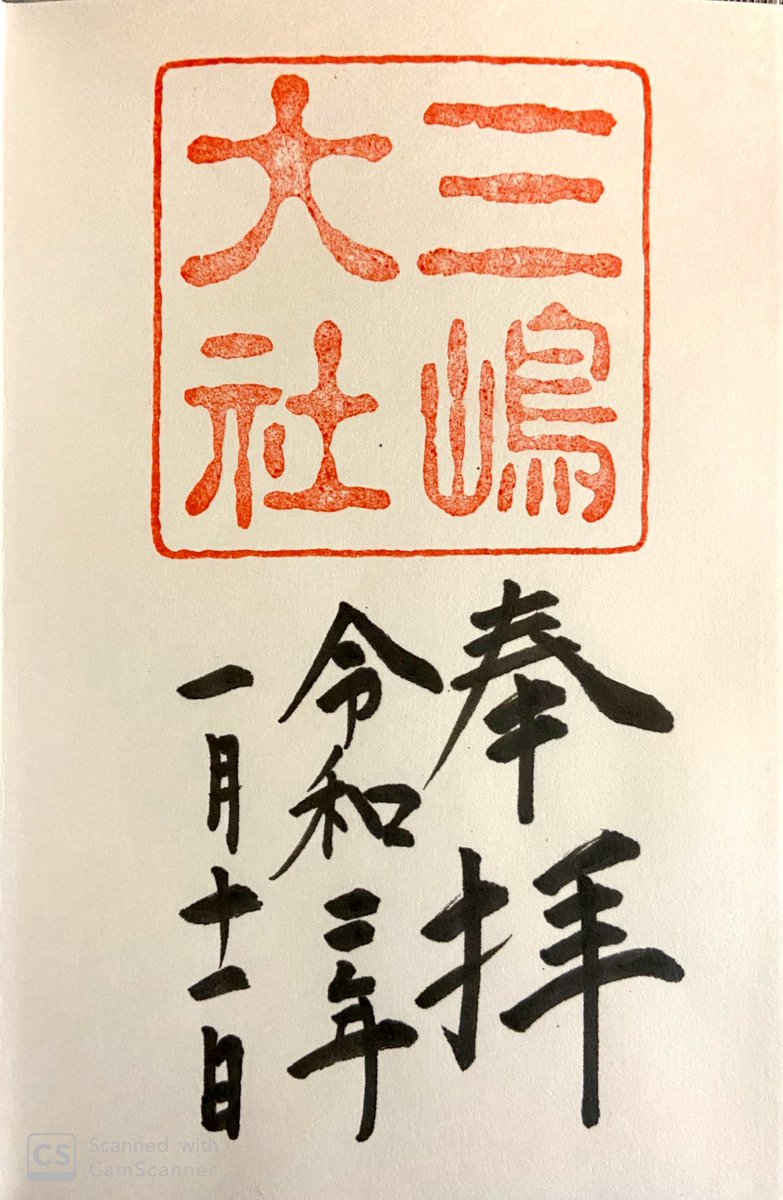 三嶋
大社
奉拝
令和二年
一月十一日
CS Scanned with
CamScanner